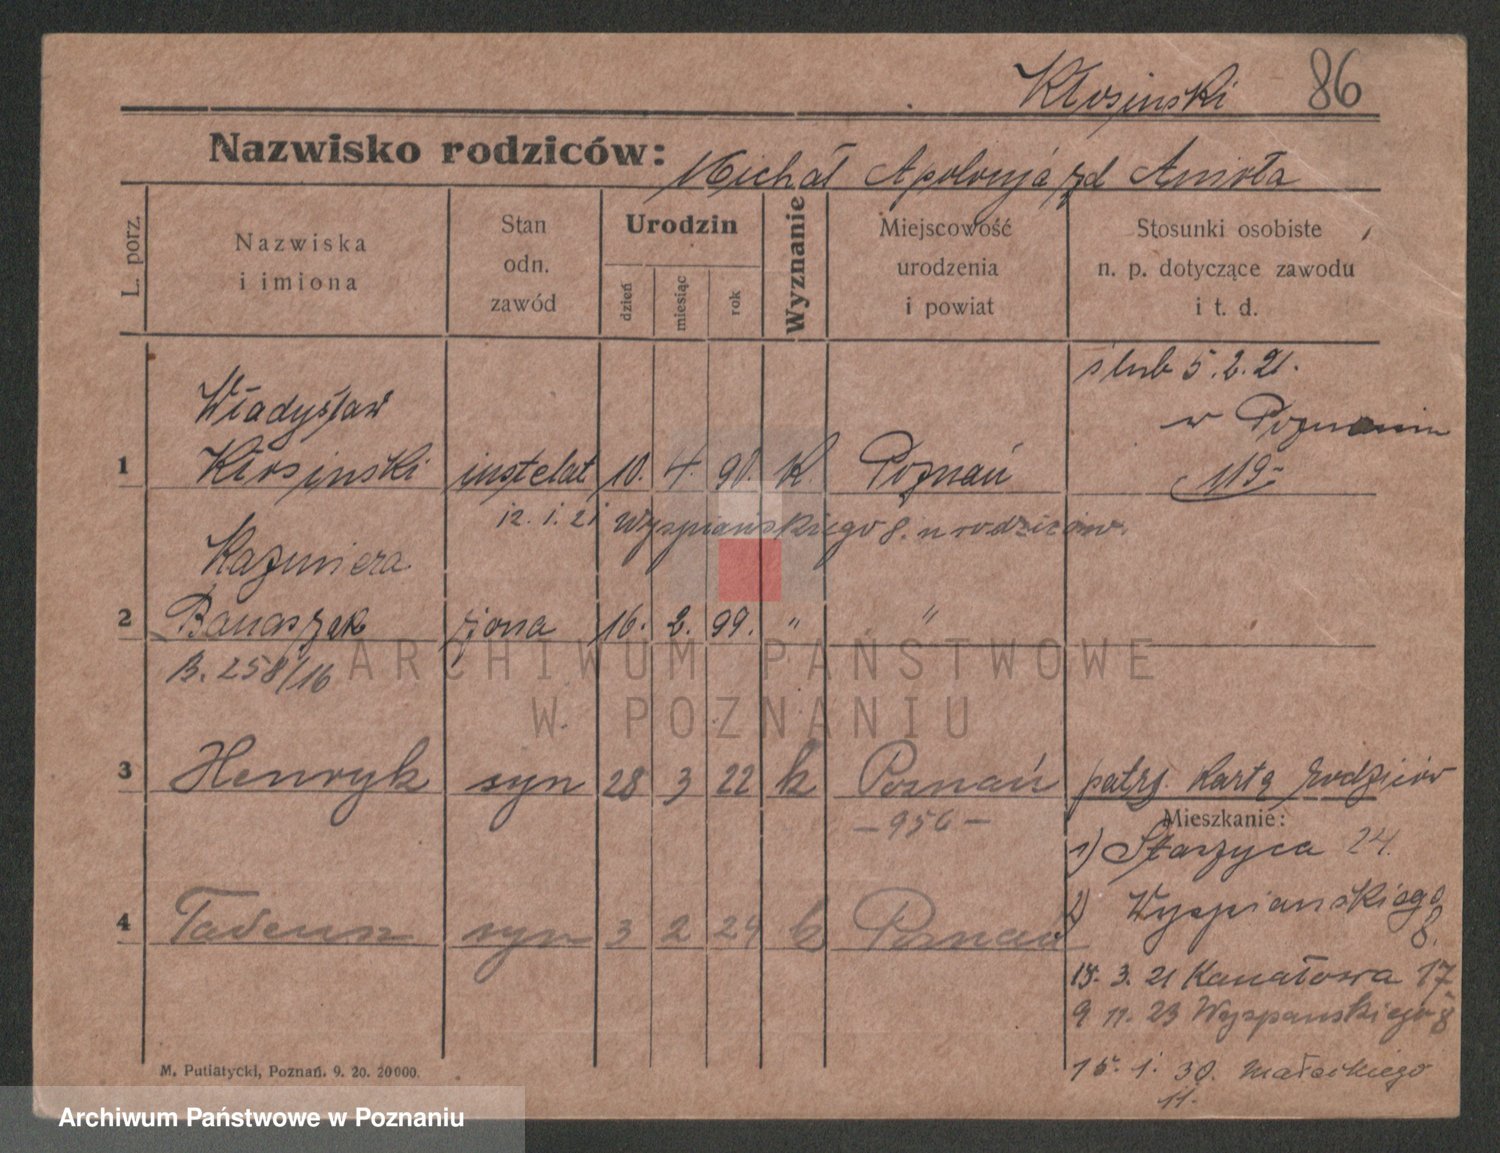 Kłosinski 86
Nazwisko rodziców: Michał Apolonja zd Anioła
L. porz.
Nazwiska i imiona
Stan odn. zawód
Urodzin
dzień
miesiąc
rok
Wyznanie
Miejscowość urodzenia i powiat
Stosunki osobiste n. p. dotyczące zawodu i t. d.
ślub 5.2.21.
w Poznaniu
119
Władysław
1 Kłosinski instalat. 10. 4. 90. K. Poznań
12.1.21 Wyspiańskiego 8. u rodziców.
Kazimiera
2 Banaszak żona 16. 2. 99. " "
B. 258/16
3 Henryk syn 28 3 22 k Poznań patrz kartę rodziców
– 956 –
Mieszkanie:
1) Staszyca 24.
2) Wyspianskiego 8.
4 Tadeusz syn 3 2 24 k Poznań
15. 3. 21 Kanałowa 17
9 11. 23 Wyspanskiego 8
15. 1. 30. Małeckiego
11.
M. Putiatycki, Poznań. 9. 20. 20000.
ARCHIWUM PAŃSTWOWE
W POZNANIU
Archiwum Państwowe w Poznaniu